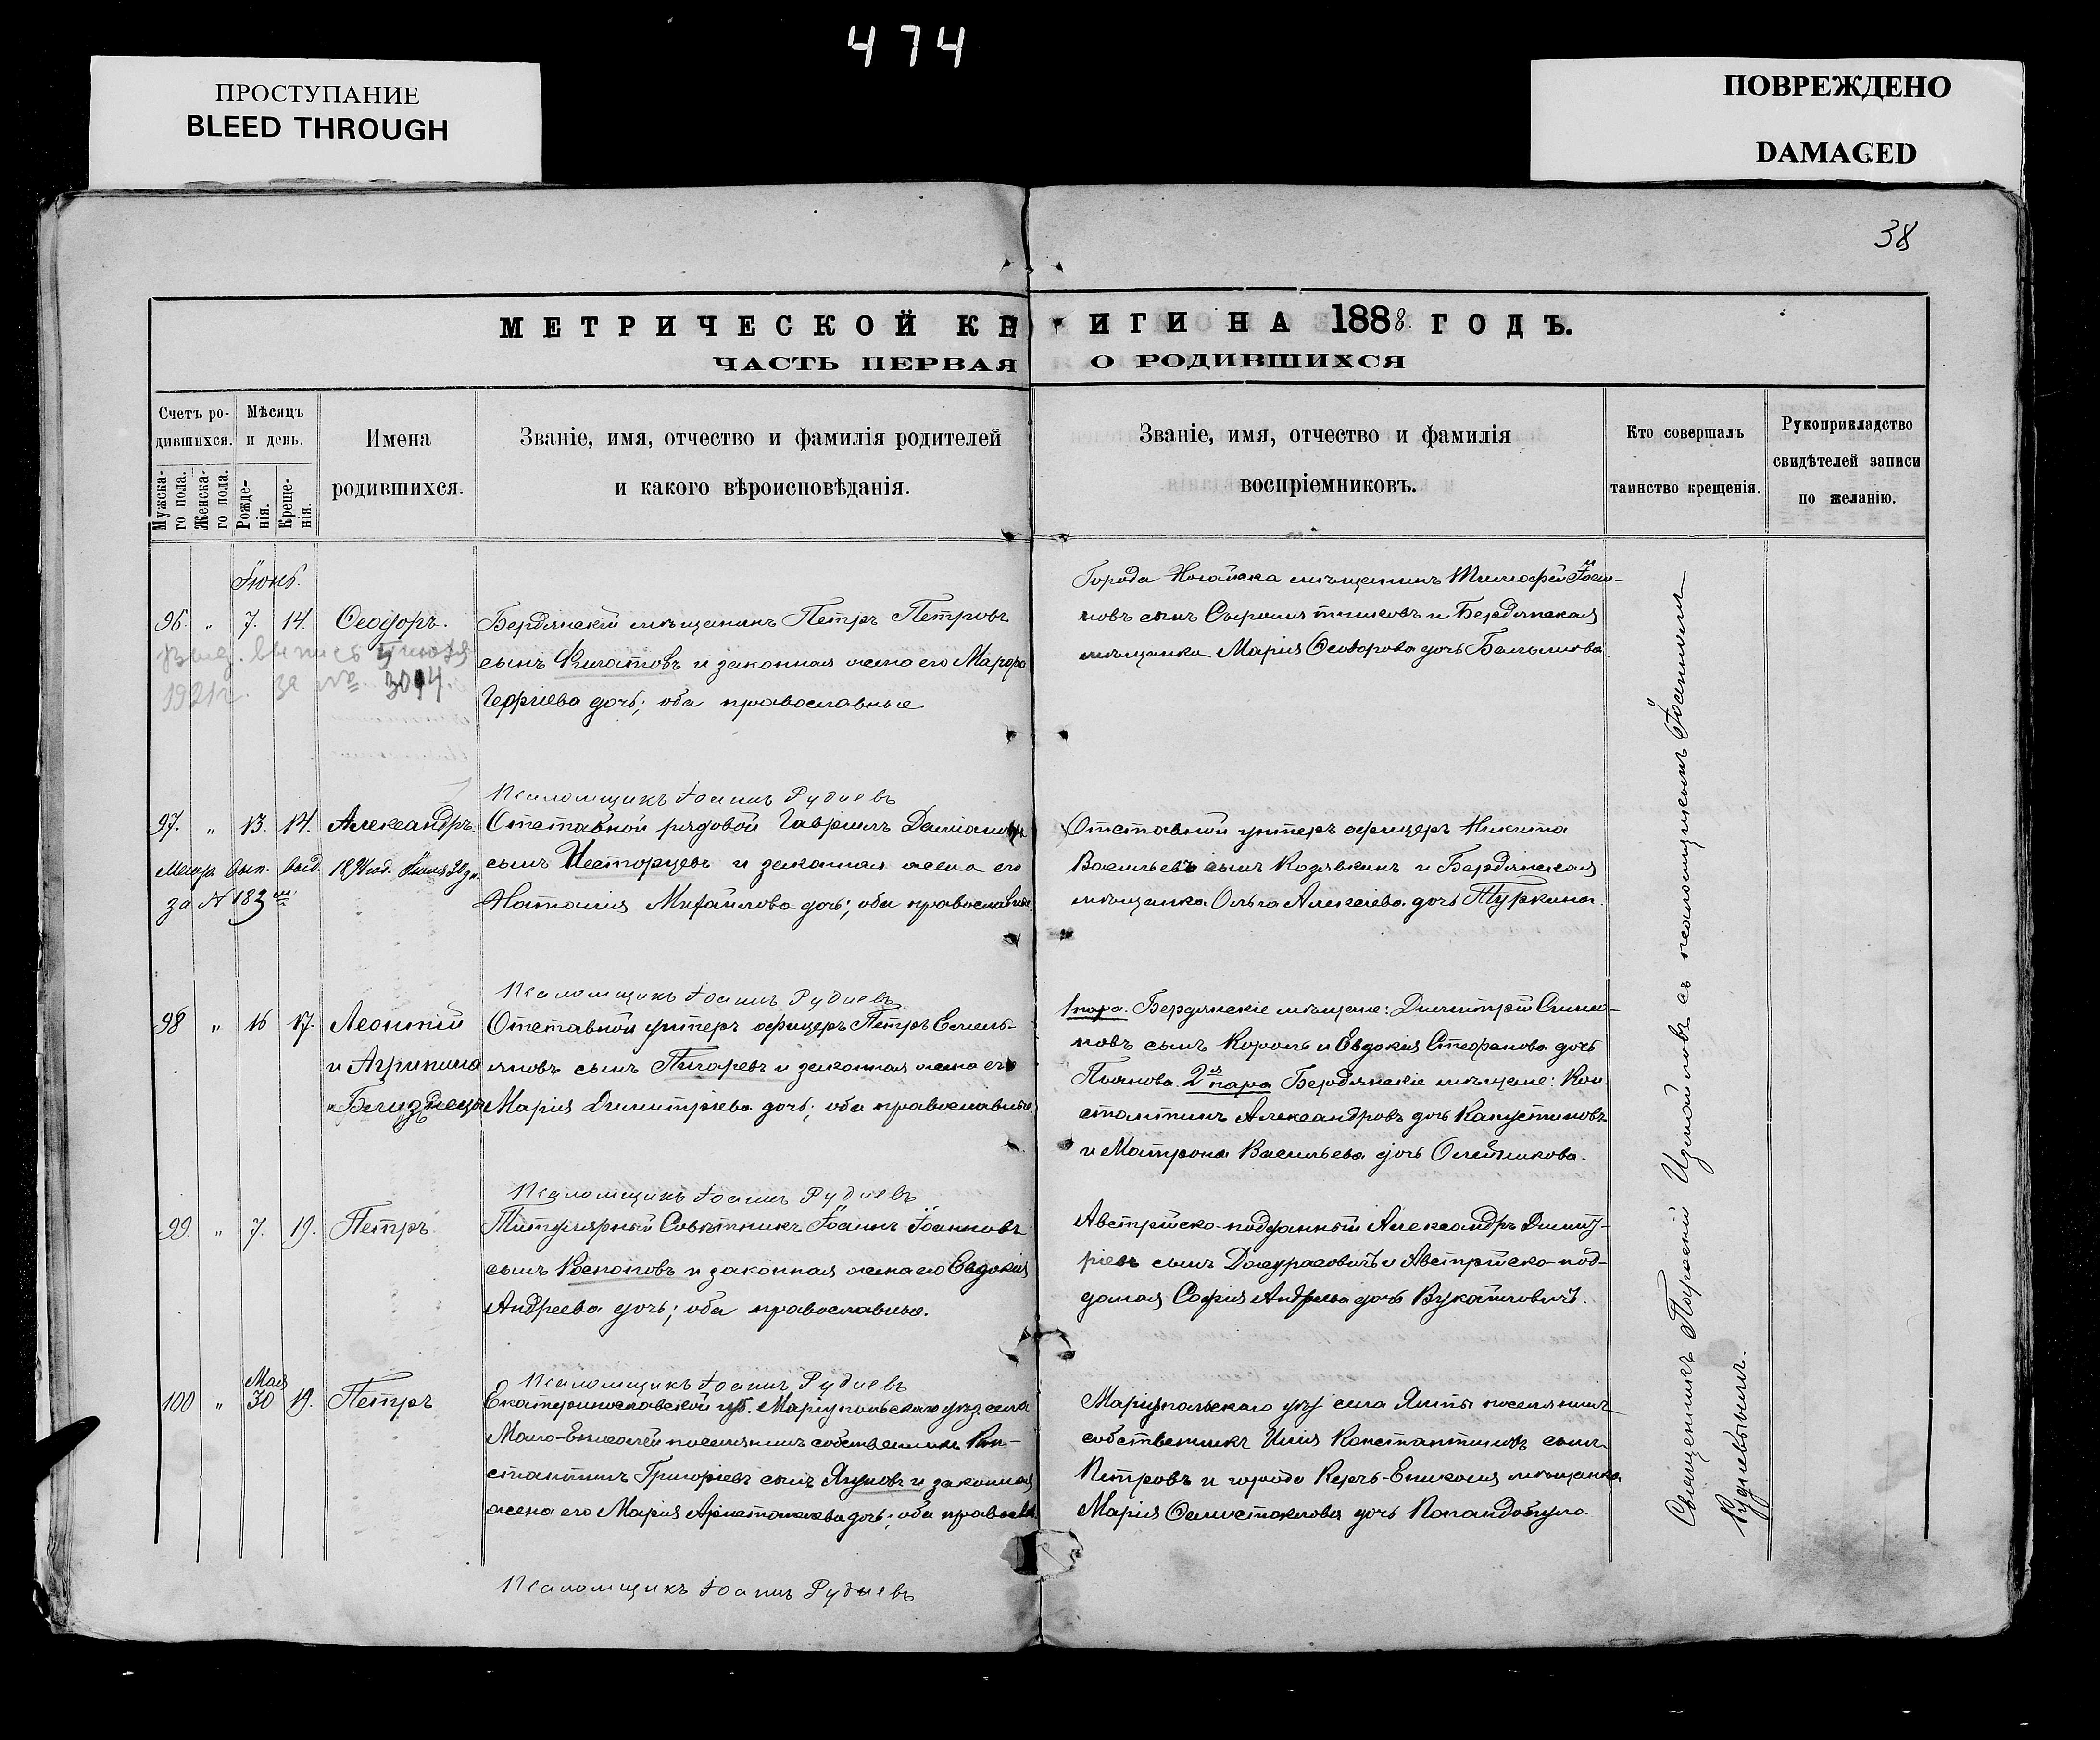 474
ПРОСТУПАНИЕ
BLEED THROUGH
ПОВРЕЖДЕНО
DAMAGED
38
МЕТРИЧЕСКОЙ КНИГИ НА 1888 ГОДЪ.
ЧАСТЬ ПЕРВАЯ О РОДИВШИХСЯ
Счетъ ро-
дившихся.
Мужска-
го пола.
Женска-
го пола.
Мѣсяцъ
и день.
Рожде-
нія.
Креще-
нія.
Имена
родившихся.
Званіе, имя, отчество и фамилія родителей
и какого вѣроисповѣданія.
Званіе, имя, отчество и фамилія
воспріемниковъ.
Кто совершалъ
таинство крещенія.
Рукоприкладство
свидѣтелей записи
по желанію.
Іюнь.
96. " 7. 14. Ѳеодоръ. Бердянскій мѣщанинъ Петръ Петровъ
сынъ Филатовъ и законная жена его Марфа
Георгіева дочь; оба православные
выд. выпись Іюля
1921г. за № 3014.
Города Ногайска мѣщанинъ Тимофей
новъ сынъ Сыромятниковъ и Бердянская
мѣщанка Марія Ѳеодорова дочь
Псаломщикъ Іоаннъ Рудневъ
97. " 13. 14. Александръ. Отставной рядовой Гавріилъ Даміановъ
сынъ Несторцевъ и законная жена его
Наталія Михайлова дочь; оба православные.
Метр. вып. выд. 1891 год. Іюня 20 дн.
за № 183
Отставной унтеръ офицеръ Никита
Васильевъ сынъ Козявкинъ и Бердянская
мѣщанка Ольга Алексіева дочь Туркина.
Псаломщикъ Іоаннъ Рудневъ
98 " 16 17. Леонтій Отставной унтеръ офицеръ Петръ Емель-
и Агрипина яновъ сынъ Пигаревъ и законная жена его
Близнецы Марія Димитріева дочь; оба православные.
1 пара. Бердянскіе мѣщане: Димитрій Симо-
новъ сынъ Король и Евдокія Стефанова дочь
2я пара Бердянскіе мѣщане: Кон-
стантинъ Александровъ дочь Капустиновъ
и Матрона Васильева дочь Олейникова.
Псаломщикъ Іоаннъ Рудневъ
99. " 7. 19. Петръ Титулярный Совѣтникъ Іоаннъ Іоанновъ
сынъ Косноповъ и законная жена его Евдокія
Андреева дочь; оба православные.
Австрійско-подданный Александръ Димит-
ріевъ сынъ и Австрійско-под-
даная Софія Андреева дочь Вукашиновичъ.
Псаломщикъ Іоаннъ Рудневъ
Мая
100 " 30 19. Петръ Екатеринославской губ. Маріупольскаго уѣз. села
Мало-Енисоли поселянинъ собственникъ Кон-
стантинъ Григоріевъ сынъ Ягуповъ и законная
жена его Марія Аристотелева дочь; оба правосл.
Маріупольскаго уѣз села Ялты поселянинъ
собственникъ Илія Константиновъ сынъ
Петровъ и города Керчь-Еникаля мѣщанка
Марія Ѳемистоклова дочь Попандопуло.
Псаломщикъ Іоаннъ Рудневъ
Священникъ съ псаломщикомъ Іоанномъ
Рудневымъ.